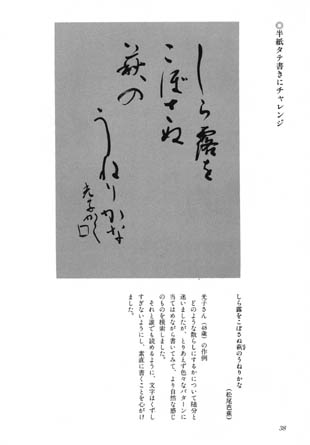 ◎半紙タテ書きにチャレンジ
しら露を
こぼさぬ
萩の
うねりかな
光子かく
しら露をこぼさぬ萩のうねりかな
はぎ
（松尾芭蕉）
光子さん（48歳）の作例
どのような散らしにするかについて随分と
迷いましたが、とりあえず色々なパターンに
当てはめながら書いてみて、より自然な感じ
のものを模索しました。
それと誰でも読めるように、文字はくずし
すぎないようにし、素直に書くことを心がけ
ました。
38